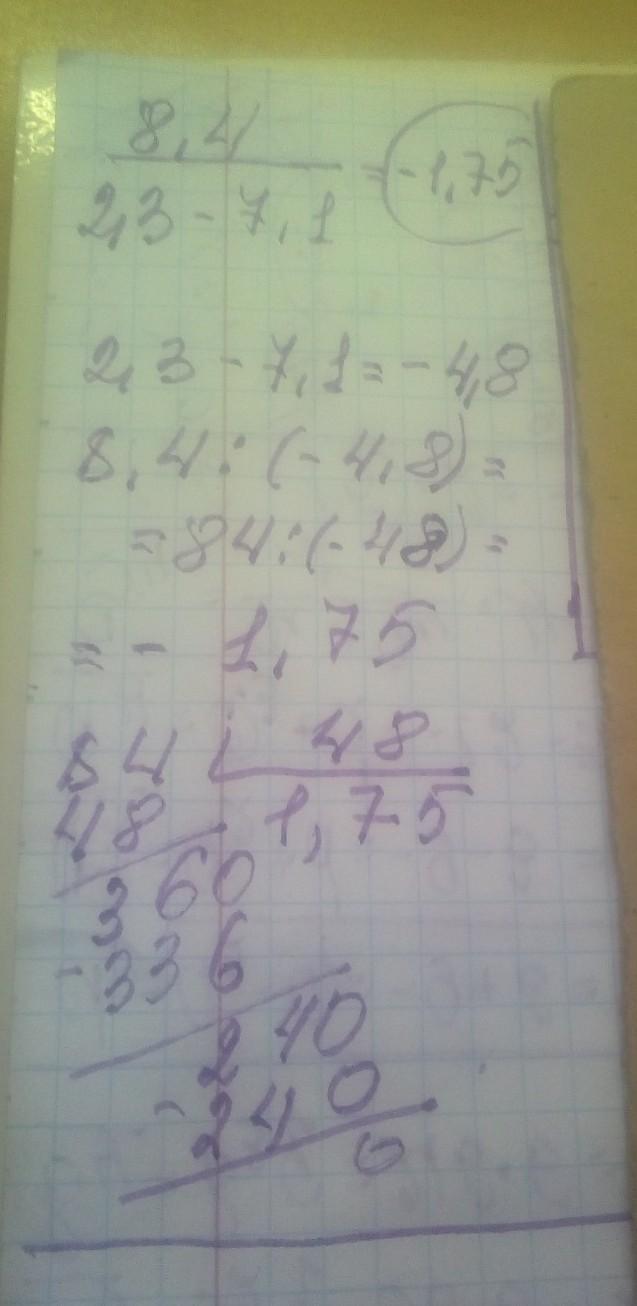 8,4
2,3 - 7,1 = -1,75
2,3 - 7,1 = -4,8
8,4 : (-4,8) =
= 84 : (-48) =
= - 1,75
84 48
48 1,75
360
-336
240
-240
0